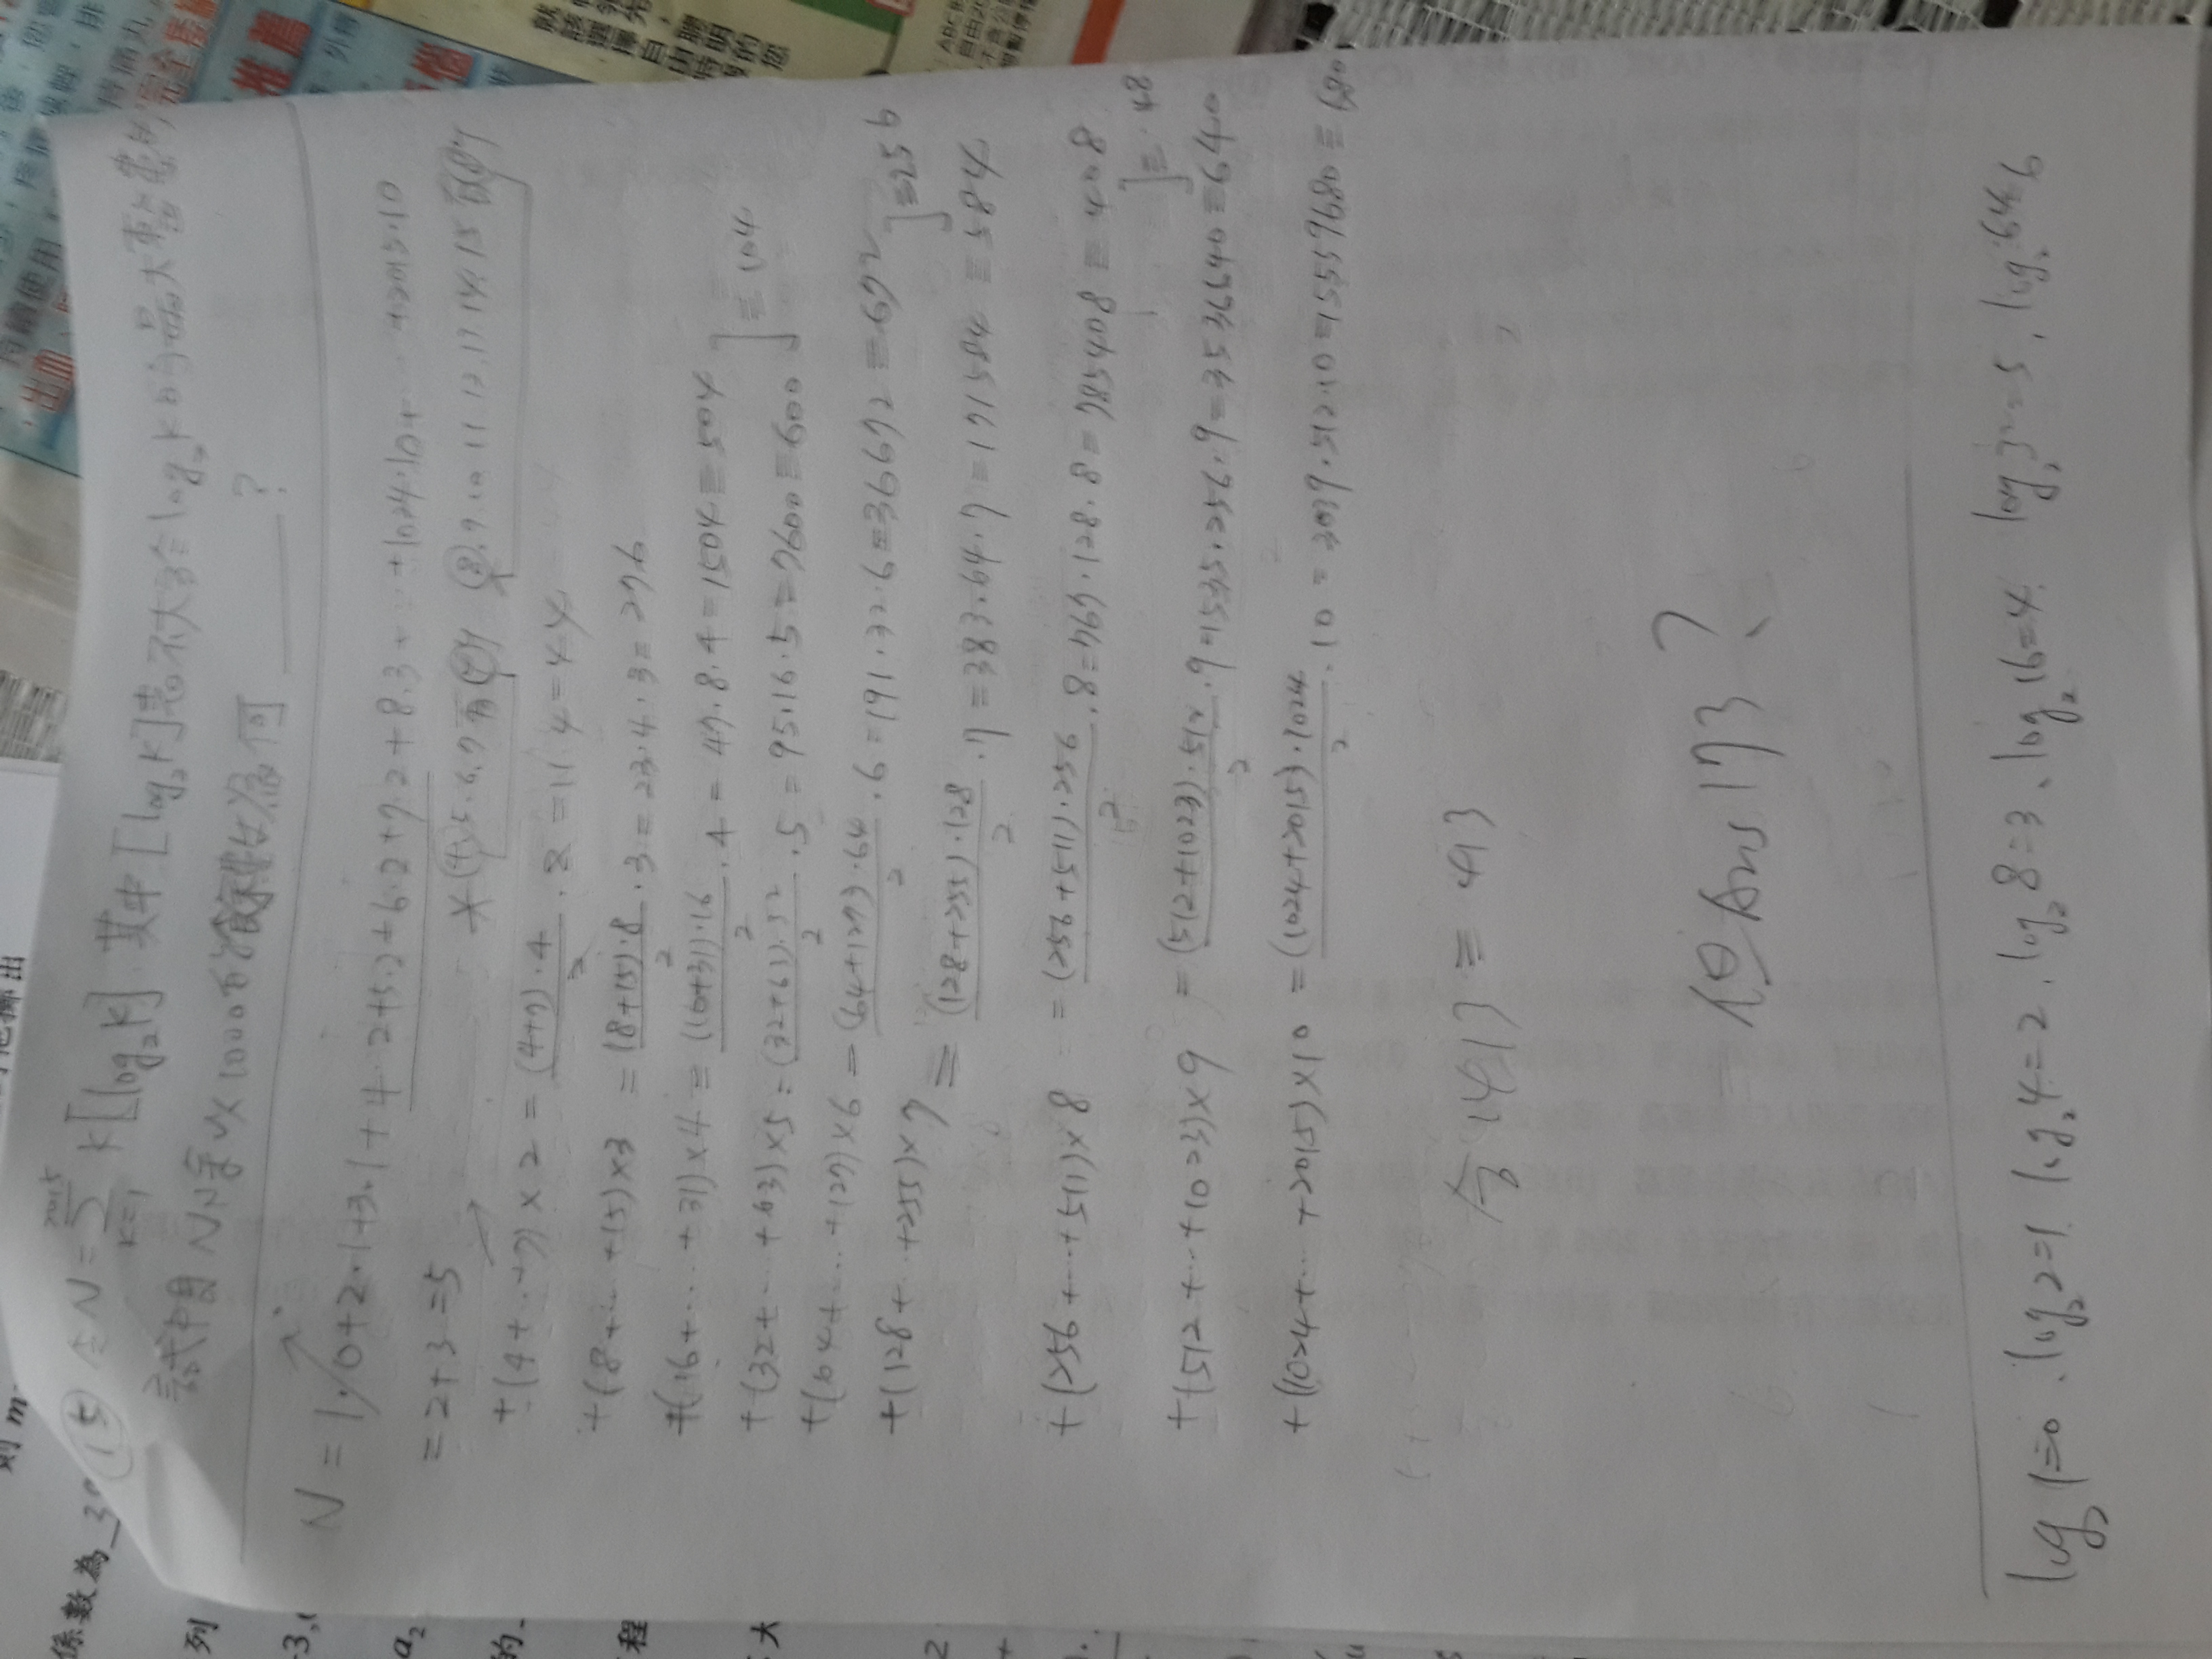 則 m
係數為 3
列
-3,
a₂
的
程
大
持續使用
出血
推薦
完全
⑮ 令 N = Σ_{k=1}^{2015} k[log₂k] 其中 [log₂k] 表不大於 log₂k 的最大整數
試問 N除以1000的餘數為何 ______ ?
N = 1·0+2·1+3·1+4·2+5·2+6·2+7·2+8·3+…+1024·10+… +2015·10
= 2+3 =5
* 4.5.6.7有4個 8.9.10.11.12.13.14.15有8個
+(4+…+7)×2 = (4+7)·4/2 · 2 = 11·4 = 44
+(8+…+15)×3 = (8+15)·8/2 · 3 = 23·4·3 = 276
+(16+…+31)×4 = (16+31)·16/2 · 4 = 47·8·4 = 1504 ≡ 504
] ≡ 104
+(32+…+63)×5 = (32+63)·32/2 · 5 = 95·16·5 = 7600 ≡ 600
+(64+…+127)×6 = (64+127)·64/2 · 6 = 191·32·6 = 36672 ≡ 672
] ≡ 256
+(128+…+255)×7 = (128+255)·128/2 · 7 = 383·64·7 = 171584 ≡ 584
+(256+…+511)×8 = (256+511)·256/2 · 8 = 767·128·8 = 785408 ≡ 408
] ≡ 48
+(512+…+1023)×9 = (512+1023)·512/2 · 9 = 1535·256·9 = 3536640 ≡ 640
+(1024+…+2015)×10 = (1024+2015)·1024/2 · 10 = 3039·512·10 = 15559680 ≡ 680
合 1413 ≡ 413
但Ans 173 ?
log₂1=0 、log₂2=1 log₂4=2 、log₂8=3 、log₂16=4 log₂32=5 、log₂64=6